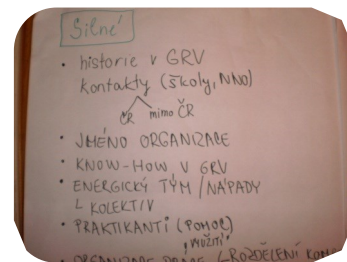 Silné
• historie v GRV
kontakty (školy, NNO)
ČR mimo ČR
• JMÉNO ORGANIZACE
• KNOW-HOW V GRV
• ENERGICKÝ TÝM / NÁPADY
└ KOLEKTIV
• PRAKTIKANTI (POMOC)
"VYUŽITÍ"
• ORGANIZACE PRÁCE └ROZDĚLENÍ